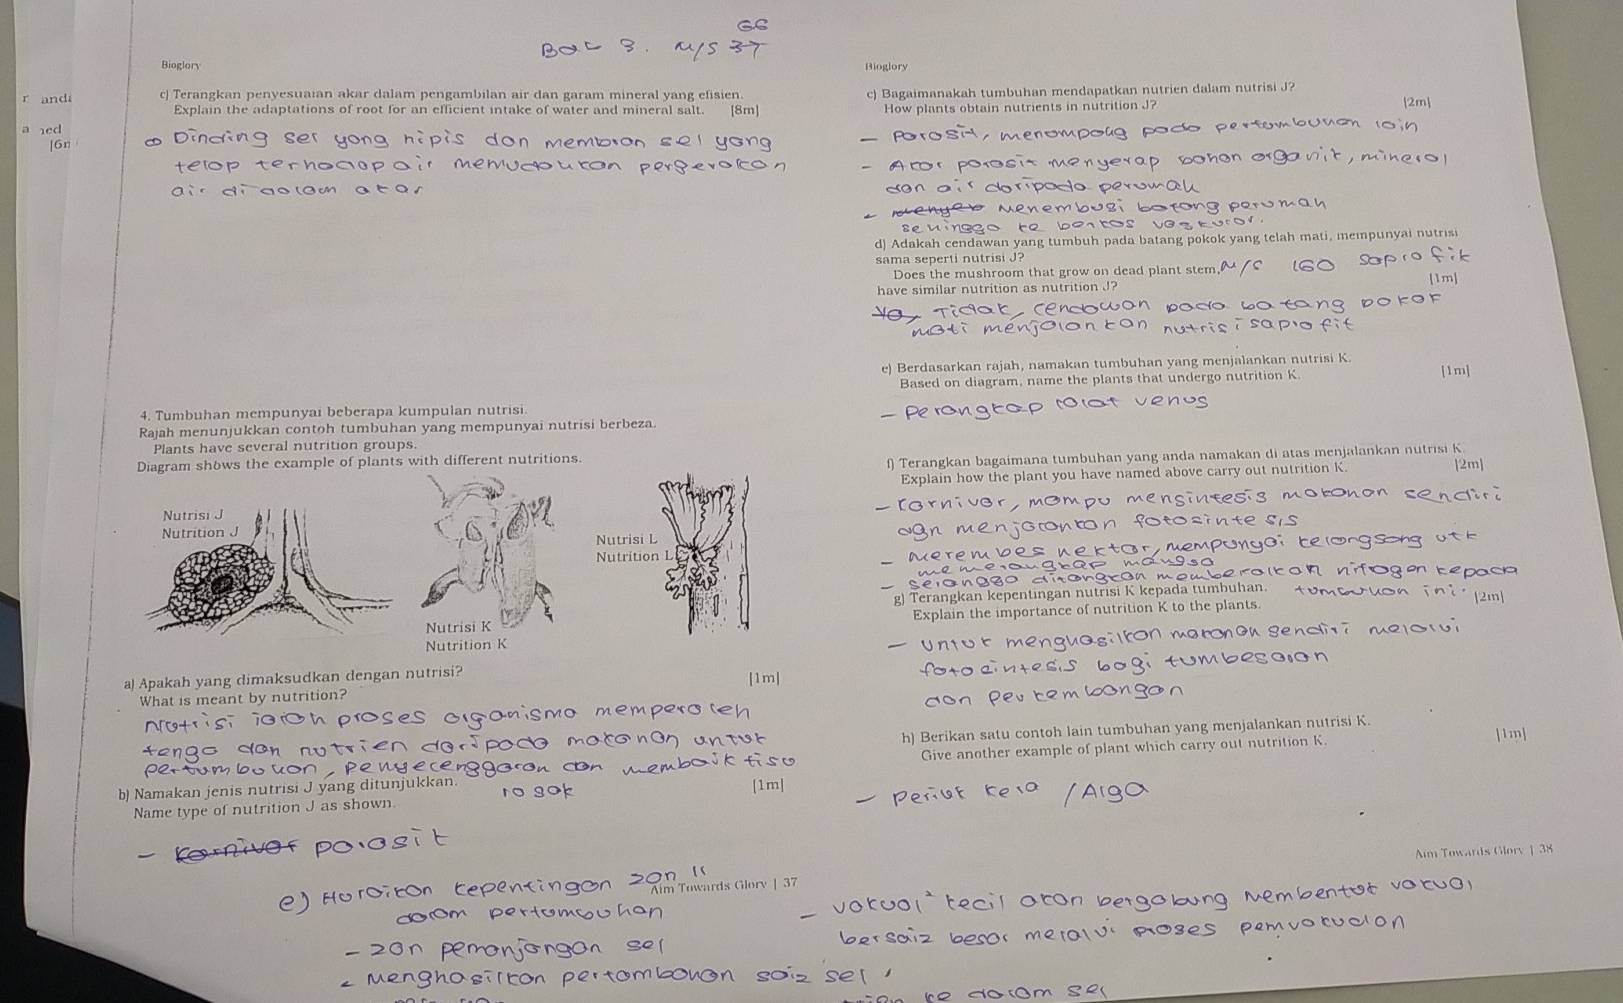 GG
Bab 3. M/S 37
Bioglory
r anda
a ned
[6m
c) Terangkan penyesuaian akar dalam pengambilan air dan garam mineral yang efisien.
Explain the adaptations of root for an efficient intake of water and mineral salt. [8m]
Dinding sel yang nipis dan membran sel yang
telap terhadap air memudahkan pergerakan
air di dalam akar
4. Tumbuhan mempunyai beberapa kumpulan nutrisi.
Rajah menunjukkan contoh tumbuhan yang mempunyai nutrisi berbeza.
Plants have several nutrition groups.
Diagram shows the example of plants with different nutritions.
Nutrisi J
Nutrition J
Nutrisi K
Nutrition K
Nutrisi L
Nutrition L
a) Apakah yang dimaksudkan dengan nutrisi? [1m]
What is meant by nutrition?
Nutrisi ialah proses organisma memperoleh
tenga dan nutrien daripada makanan untuk
pertumbuhan, penyelenggaran dan membaik tisu
b) Namakan jenis nutrisi J yang ditunjukkan. rosak [1m]
Name type of nutrition J as shown.
- karnivor parasit
Aim Towards Glory | 37
e) Huraikan kepentingan zon "
dalam pertumbuhan
- zon pemanjangan sel
- Menghasilkan pertambahan saiz sel
Bioglory
c) Bagaimanakah tumbuhan mendapatkan nutrien dalam nutrisi J?
How plants obtain nutrients in nutrition J? [2m]
- Parasit, menompang pada pertumbuhan lain
- Akar parasit menyerap bahan organik, mineral
dan air daripada perumah
- Menembusi batang perumah
sehingga ke berkas vaskular.
d) Adakah cendawan yang tumbuh pada batang pokok yang telah mati, mempunyai nutrisi
sama seperti nutrisi J?
Does the mushroom that grow on dead plant stem, M/S 160 saprofik
have similar nutrition as nutrition J? [1m]
Ya, Tidak, cendawan pada batang pokok
mati menjalankan nutrisi saprofit
e) Berdasarkan rajah, namakan tumbuhan yang menjalankan nutrisi K.
Based on diagram, name the plants that undergo nutrition K. [1m]
- Perangkap lalat venus
f) Terangkan bagaimana tumbuhan yang anda namakan di atas menjalankan nutrisi K.
Explain how the plant you have named above carry out nutrition K. [2m]
- karnivor, mampu mensintesis makanan sendiri
dgn menjalankan fotosintesis
- merembes nektar, mempunyai kelongsong utk
memerangkap mangsa
- serangga ditangkan membekalkan nitrogen kepada
tumbuhan ini.
g) Terangkan kepentingan nutrisi K kepada tumbuhan. [2m]
Explain the importance of nutrition K to the plants.
- untuk menghasilkan makanan sendiri melalui
fotosintesis bagi tumbesaran
dan perkembangan
h) Berikan satu contoh lain tumbuhan yang menjalankan nutrisi K.
Give another example of plant which carry out nutrition K. [1m]
- Periuk kera / Alga
Aim Towards Glory | 38
- vakuol² kecil akan bergabung membentuk vakuol
bersaiz besar melalui proses pemvakuolan
ke dalam sel